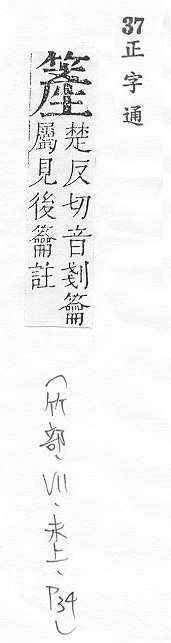 37 正字通
簅
楚反切音剗籥
屬見後籥註
(竹部、VII、未上、P34)